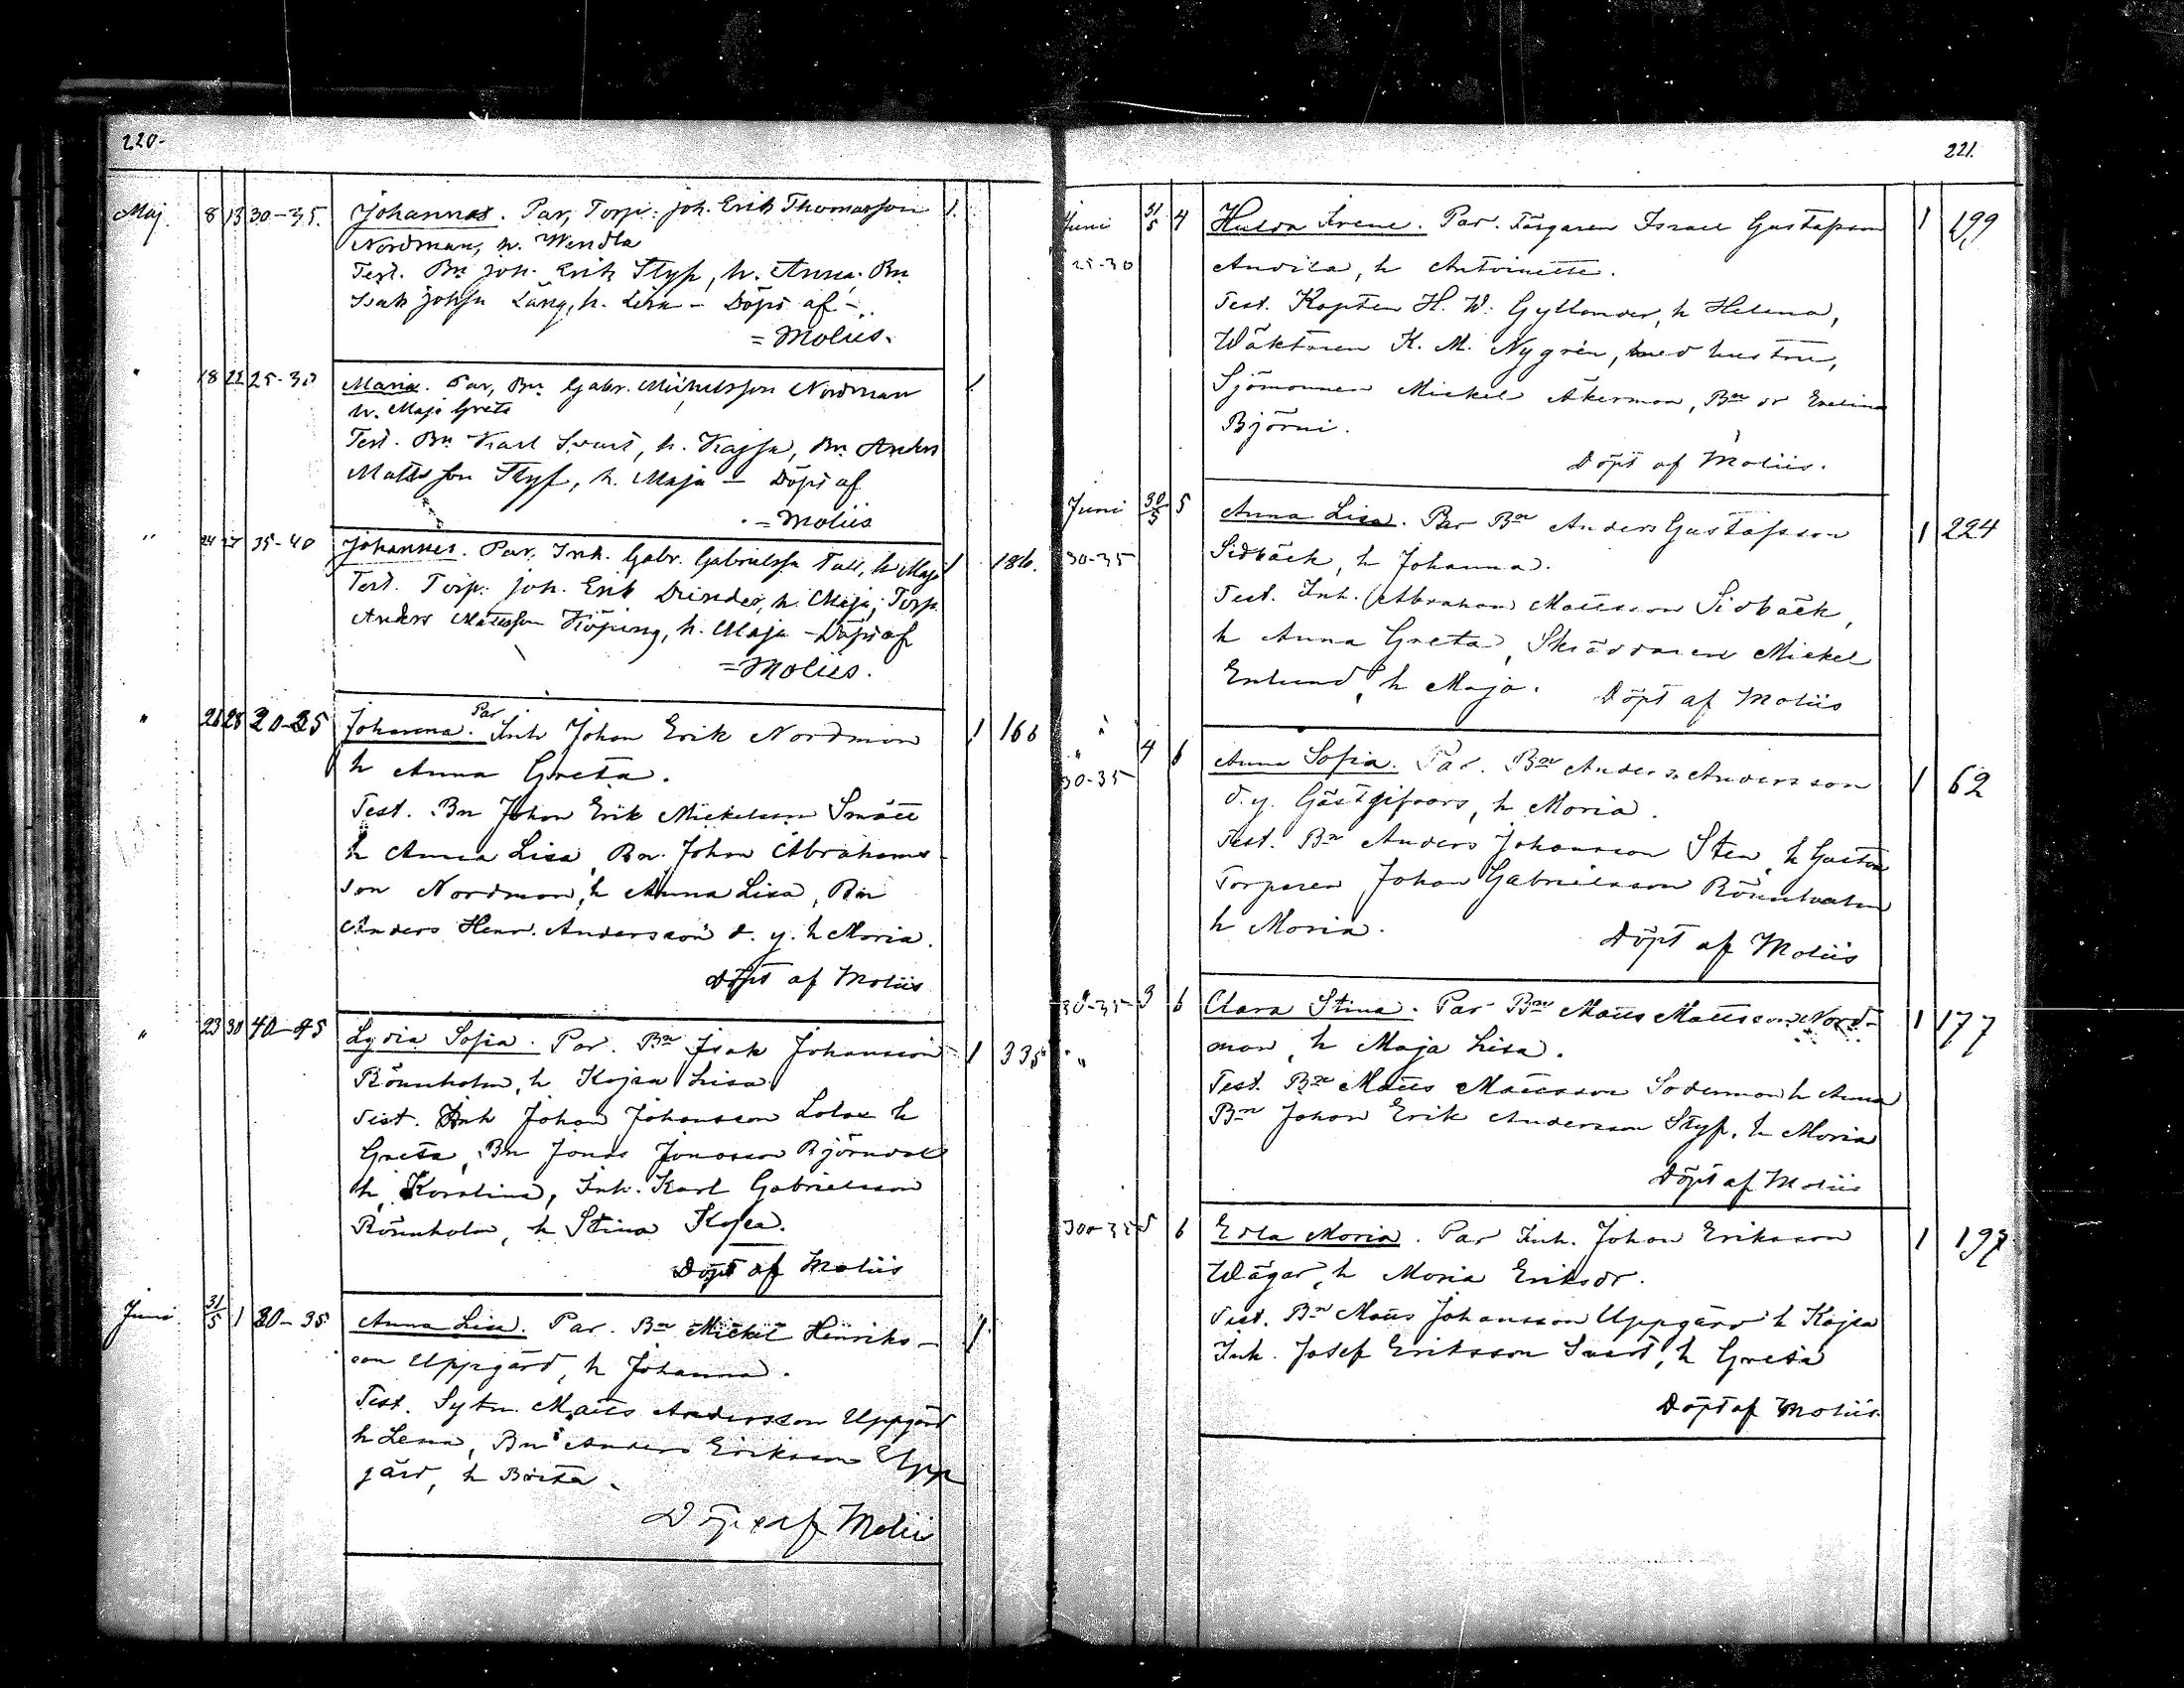 220.
Maj. 8 13 30-35. Johannes. Par, Torp: Joh. Erik Thomasson 1.
Nordman, h. Wendla
Test. Bn Joh. Erik Styf, h. Anna, Bn
Isak Johsn Lång, h. Lisa - Döpt af -
= Moliis.
" 18 22 25-30 Maria. Par, Bn Gabr. Michelsson Nordman 1
h. Maja Greta
Test. Bn Karl Svart, h. Kajsa, Bn Anders
Mattsson Styf, h. Maja - Döpt af
= Moliis
" 24 27 35-40 Johannes. Par, Inh. Gabr. Gabrielss Tall, h Maja 1 186.
Test. Torp. Joh. Erik h. Maja, Torp.
Anders Mattsson Köping, h. Maja - Döpt af
= Moliis.
" 26 28 20-25 Johanna. Par Inh Johan Erik Nordman 1 166
h Anna Greta.
Test. Bn Johan Erik Mickelsson Smått
h Anna Lisa, Bn. Johan Abrahams-
son Nordman, h Anna Lisa, Bn
Anders Henr. Andersson d. y. h Maria.
Döpt af Moliis
" 23 30 40-45 Lydia Sofia. Par. Bn Isak Johansson 1 335
Rönnholm, h Kajsa Lisa.
Test. Inh Johan Johansson Lolax h
Greta, Bn Jonas Jonasson Björndal
h Karolina, Inh. Karl Gabrielsson
Rönnholm, h Stina Kajsa.
Döpt af Moliis
Juni 31/5 1 30-35 Anna Lisa. Par. Bn Mickel Henriks- 1
son Uppgård, h Johanna.
Test. Sytn. Matts Andersson Uppgård
h Lena, Bn Anders Eriksson Upp
gård, h Brita.
Döpt af Molii
221.
Juni 31/5 4 Hulda Irene. Par. Färgaren Israel Gustafsson 1 199
25-30 h Antoinette.
Test. Kapten H. W. Gyllander, h Helena,
Wäktaren K. M. Nygrén, med hustru,
Sjömannen Mickel Åkerman, Bn dr Evelina
Björni.
Döpt af Moliis.
Juni 30/5 5 Anna Lisa. Par Bn Anders Gustafsson 1 224
30-35 Sidbäck, h Johanna.
Test. Inh. Abraham Mattsson Sidbäck,
h Anna Greta, Skräddaren Mickel
Enlund, h Maja. Döpt af Moliis
" 4 6 Anna Sofia. Par. Bn Anders Andersson 1 62
30-35 d. y. Gästgifvars, h Maria.
Test. Bn Anders Johansson Sten, h Gustava
Torparen Johan Gabrielsson Rönnholm
h Maria.
Döpt af Moliis
30-35 3 6 Clara Stina. Par Bn Matts Mattsson Nord- 1 177
" man, h Maja Lisa.
Test. Bn Matts Mattsson Söderman h Anna
Bn Johan Erik Andersson Styf, h Maria
Döpt af Moliis
30-35 5 6 Edla Maria. Par Inh. Johan Eriksson 1 197
Wägar, h Maria Eriksdr.
Test. Bn Matts Johansson Uppgård h Kajsa
Inh. Josef Eriksson Svart, h Greta
Döpt af Moliis.